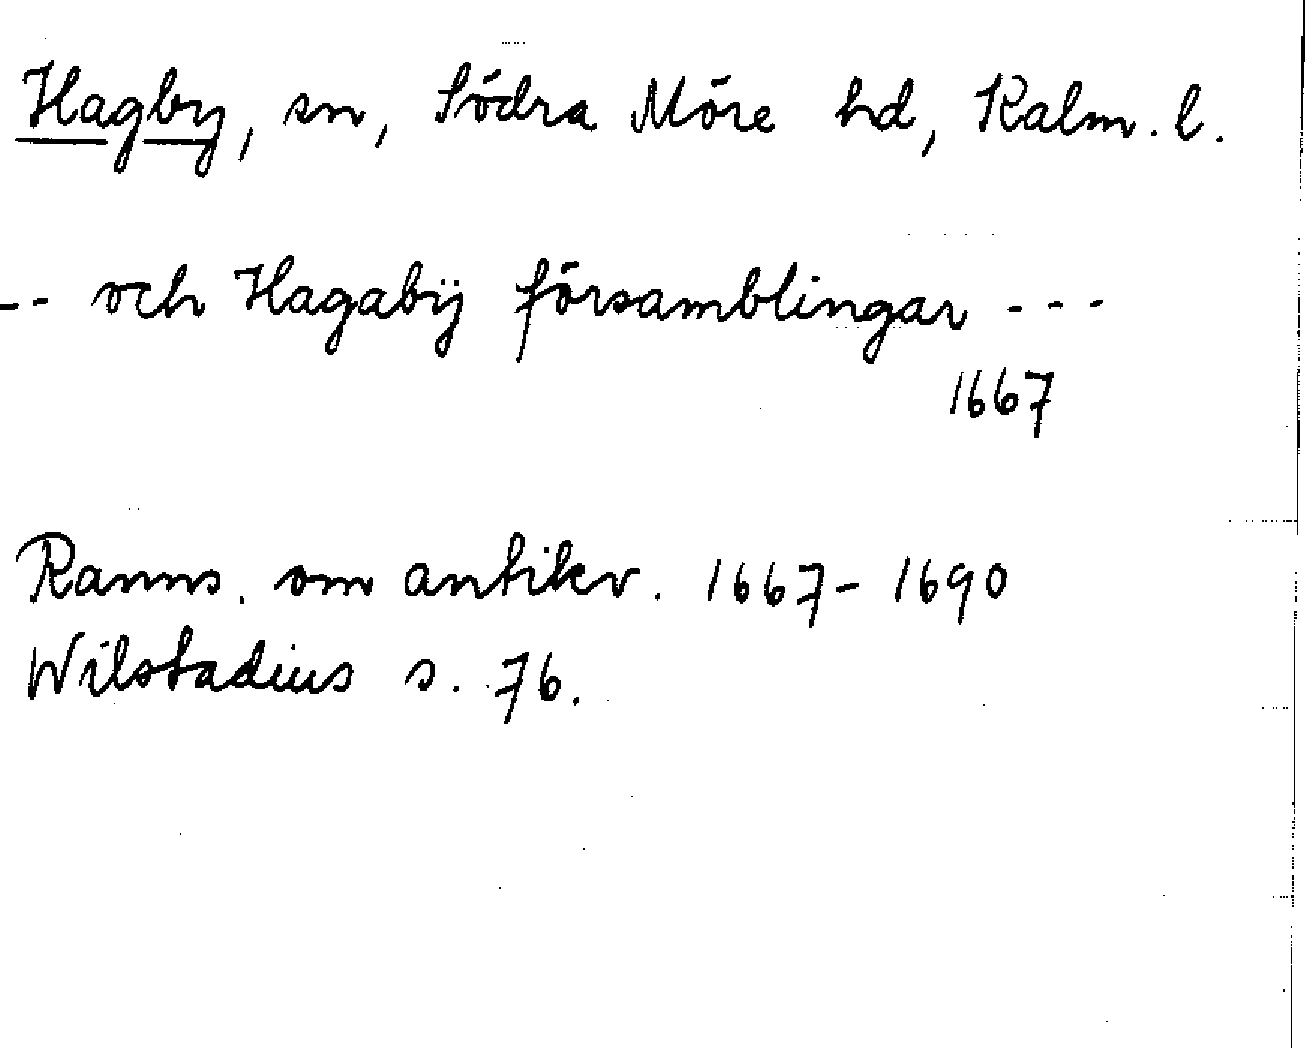 Hagby, sn, Södra Möre hd, Kalm. l.
-- och Hagabÿ församblingar ---
1667
Ranns. om antikv. 1667-1690
Wilstadius s. 76.